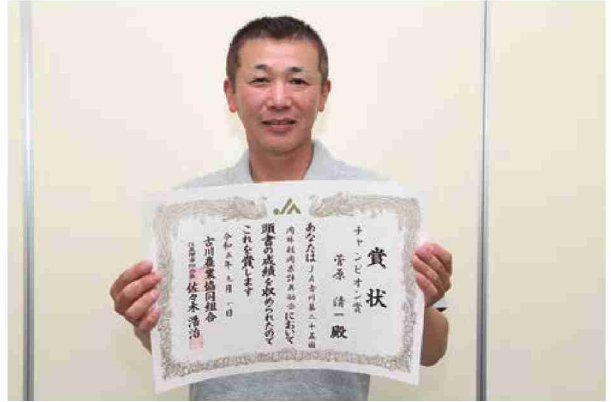 賞状
チャンピオン賞
菅原 清一 殿
あなたはJA古川第二十五回
において
頭書の成績を収められたので
これを賞します
令和五年九月一日
古川農業協同組合
佐々木浩治